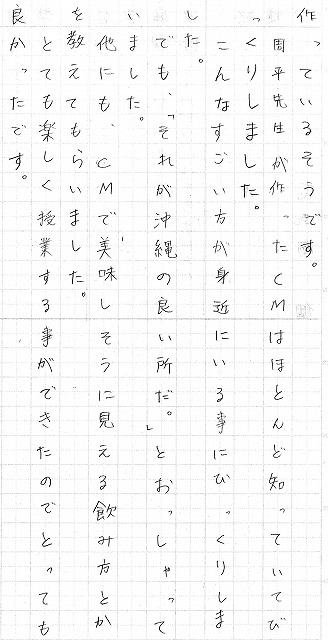 作っているそうです。
周平先生が作ったCMはほとんど知っていてび
っくりしました。
こんなすごい方が身近にいる事にびっくりしま
した。
でも、「それが沖縄の良い所だ。」とおっしゃって
いました。
他にも、CMで美味しそうに見える飲み方とか
を教えてもらいました。
とても楽しく授業する事ができたのでとっても
良かったです。